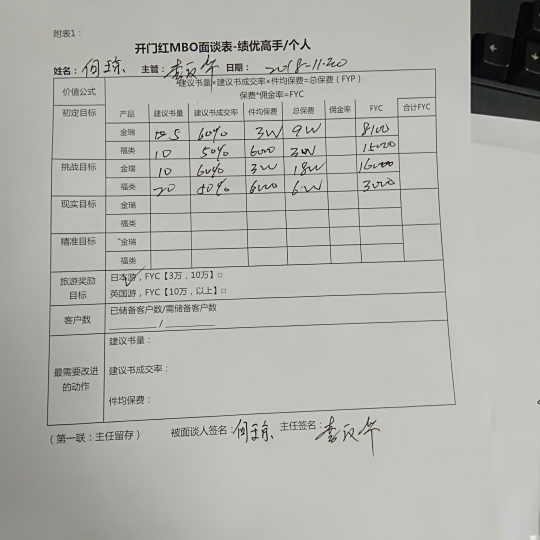 附表1：
开门红MBO面谈表-绩优高手/个人
姓名：何琼 主管： 日期：2018-11.20
价值公式 建议书量*建议书成交率*件均保费=总保费（FYP）
保费*佣金率=FYC
初定目标 产品 建议书量 建议书成交率 件均保费 总保费 佣金率 FYC 合计FYC
金瑞 5 60% 3W 9W 8100
福类 10 50% 6000 3W 15000
挑战目标 金瑞 10 60% 3W 18W
福类 20 50% 6000 6W 3000
现实目标 金瑞
福类
精准目标 金瑞
福类
旅游奖励目标 日本游，FYC【3万，10万】□
英国游，FYC【10万，以上】□
客户数 已储备客户数/需储备客户数
/
最需要改进的动作 建议书量：
建议书成交率：
件均保费：
（第一联：主任留存） 被面谈人签名：何琼 主任签名：